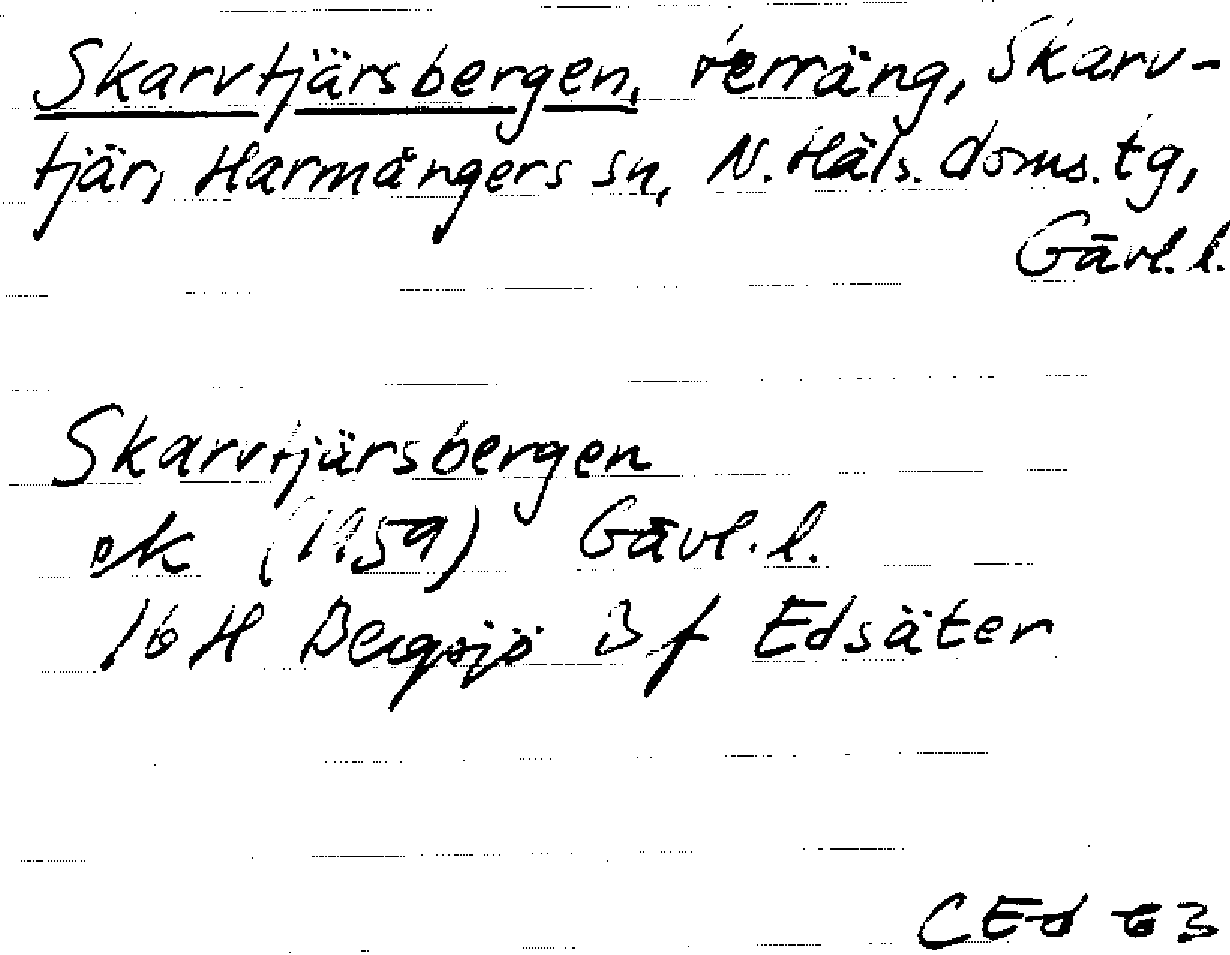 Skarvtjärsbergen, terräng, Skarv-
tjär, Harmångers sn, N. Häls. doms. tg,
Gävl. l.
Skarvtjärsbergen
ek (1959) Gävl. l.
16 H Bergsjö 3 f Edsäter
CEd 63